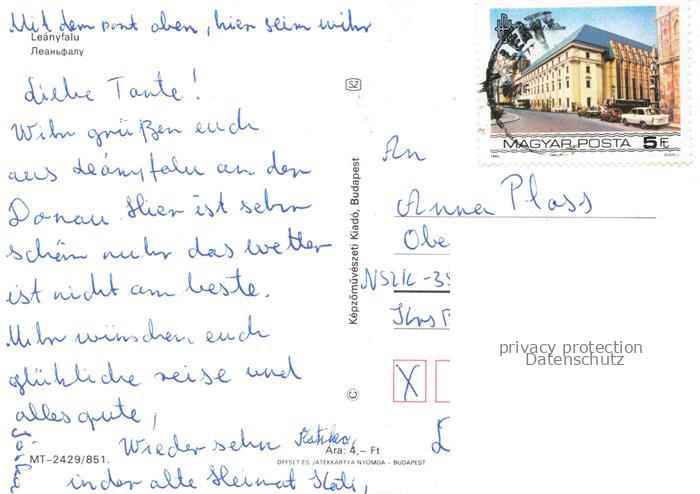 Mit dem pont oben, hier seim wihr
Leányfalu
Леаньфалу
Liebe Tante!
Wihr grüßen euch
aus Leányfalu an der
Donau. Hier ist sehr
schöm nuhr das wetter
ist nicht am beste.
Wihr wünschen euch
glükliche reise und
alles gute,
Wieder sehn Katika,
in der alte Heimat Kati,
MT-2429/851.
Ara: 4,– Ft
OFFSET ÉS JÁTÉKKÁRTYA NYOMDA – BUDAPEST
SZ
Képzőművészeti Kiadó, Budapest
©
MAGYAR POSTA 5 Ft
1984
An
Anna Plass
Obe
NSZK-35
X
privacy protection
Datenschutz